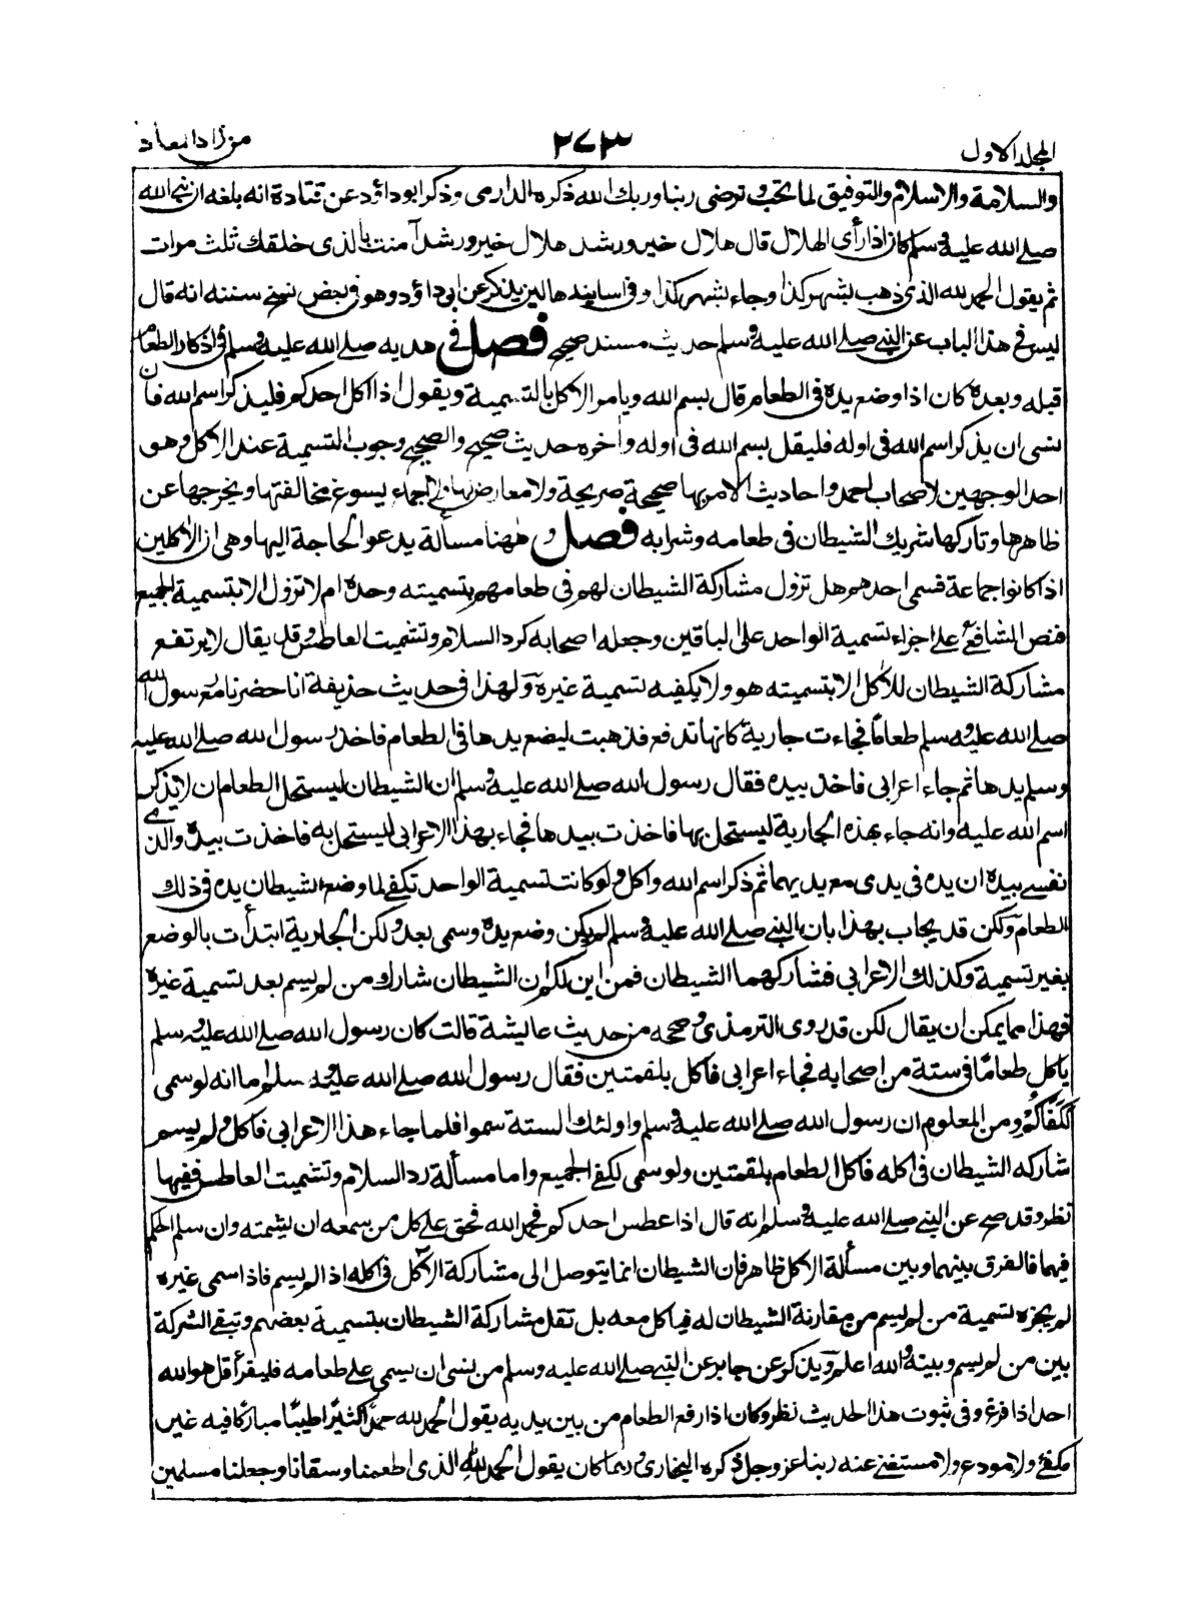 المجلد الاول
٢٧٣
من زاد المعاد
والسلامة والاسلام والتوفيق لما تحب وترضى ربنا وربك الله ذكره الدارمى وذكر ابو داؤد عن قتادة انه بلغه ان نبى الله
صلى الله عليه وسلم كان اذا رأى الهلال قال هلال خير ورشد هلال خير ورشد آمنت بالذى خلقك ثلث مرات
ثم يقول الحمد لله الذى ذهب بشهر كذا وجاء بشهر كذا وفى اسانيدها لين يذكر عن ابى داؤد وهو فى بعض نسخ سننه انه قال
ليس فى هذا الباب عن النبى صلى الله عليه وسلم حديث مسند صحيح فصل فى هديه صلى الله عليه وسلم فى اذكار الطعام
قبله وبعده كان اذا وضع يده فى الطعام قال بسم الله ويامر الاكل بالتسمية ويقول اذا اكل احدكم فليذكر اسم الله فان
نسى ان يذكر اسم الله فى اوله فليقل بسم الله فى اوله وآخره حديث صحيح والصحيح وجوب التسمية عند الاكل وهو
احد الوجهين لاصحاب احمد واحاديث الامر بها صحيحة صريحة ولا معارض لها ولا اجماع يسوغ مخالفتها ويخرجها عن
ظاهرها وتاركها شريك الشيطان فى طعامه وشرابه فصل وههنا مسألة يدعو الحاجة اليها وهى ان الآكلين
اذا كانوا جماعة فسمى احدهم هل تزول مشاركة الشيطان لهم فى طعامهم بتسميته وحده ام لا تزول الا بتسمية الجميع
فنص الشافعى على اجزاء تسمية الواحد على الباقين وجعله اصحابه كرد السلام وتشميت العاطس وقد يقال لا يرتفع
مشاركة الشيطان للآكل الا بتسميته هو ولا يكفيه تسمية غيره ولهذا فى حديث حذيفة انا حضرنا مع رسول الله
صلى الله عليه وسلم طعاما فجاءت جارية كانها تدفع فذهبت ليضع يدها فى الطعام فاخذ رسول الله صلى الله عليه
وسلم يدها ثم جاء اعرابى فاخذ بيده فقال رسول الله صلى الله عليه وسلم ان الشيطان ليستحل الطعام ان لا يذكر
اسم الله عليه وانه جاء بهذه الجارية ليستحل بها فاخذت بيدها فجاء بهذا الاعرابى ليستحل به فاخذت بيده والذى
نفسى بيده ان يده فى يدى مع يديهما ثم ذكر اسم الله واكل ولو كانت تسمية الواحد تكفى لما وضع الشيطان يده فى ذلك
الطعام ولكن قد يجاب بهذا بان النبى صلى الله عليه وسلم لم يكن وضع يده وسمى بعد ولكن الجارية ابتدأت بالوضع
بغير تسمية وكذلك الاعرابى فشاركهما الشيطان فمن اين لكم ان الشيطان شارك من لم يسم بعد تسمية غيره
فهذا مما يمكن ان يقال لكن قد روى الترمذى وصححه من حديث عايشة قالت كان رسول الله صلى الله عليه وسلم
ياكل طعاما فى ستة من اصحابه فجاء اعرابى فاكل بلقمتين فقال رسول الله صلى الله عليه وسلم اما انه لو سمى
لَكَفَاكُمْ ومن المعلوم ان رسول الله صلى الله عليه وسلم واولئك الستة سموا فلما جاء هذا الاعرابى فاكل ولم يسم
شاركه الشيطان فى اكله فاكل الطعام بلقمتين ولو سمى لكفى الجميع واما مسألة رد السلام وتشميت العاطس ففيها
نظر وقد صح عن النبى صلى الله عليه وسلم انه قال اذا عطس احدكم فحمد الله فحق على كل من سمعه ان يشمته وان سلم الحكم
فيهما فالفرق بينهما وبين مسألة الاكل ظاهر فان الشيطان انما يتوصل الى مشاركة الآكل فى اكله اذا لم يسم فاذا سمى غيره
لم يجزه تسمية من لم يسم من مقارنة الشيطان له فياكل معه بل تقل مشاركة الشيطان بتسمية بعضهم وتبقى الشركة
بين من لم يسم وبينه والله اعلم ويذكر عن جابر عن النبى صلى الله عليه وسلم من نسى ان يسمى على طعامه فليقرأ قل هو الله
احد اذا فرغ وفى ثبوت هذا الحديث نظر وكان اذا رفع الطعام من بين يديه يقول الحمد لله حمدا كثيرا طيبا مباركا فيه غير
مكفئ ولا مودع ولا مستغنى عنه ربنا عز وجل ذكره البخارى وربما كان يقول الحمد لله الذى اطعمنا وسقانا وجعلنا مسلمين